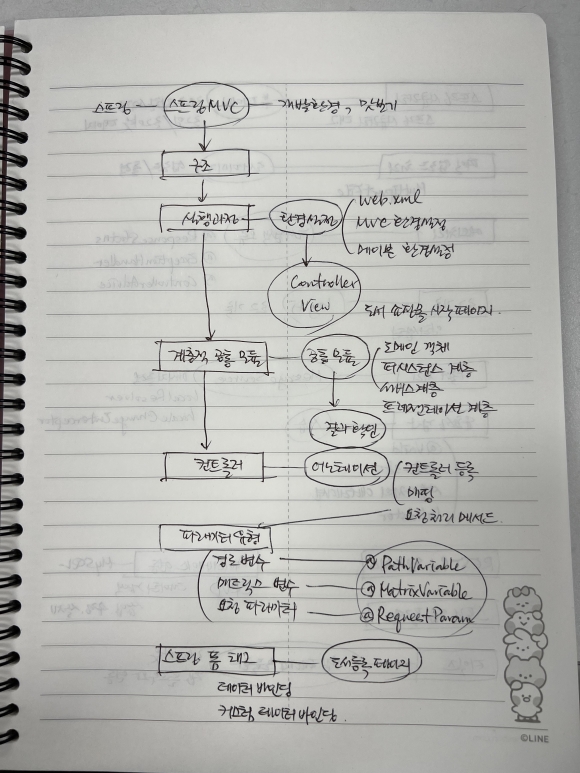 스프링 스프링 MVC 개발환경, 맛보기
구조
실행과정 환경설정 web.xml
MVC 환경설정
메이븐 환경설정
Controller
View
도서 쇼핑몰 시작 페이지.
계층적 공통 모듈 공통 모듈 도메인 객체
퍼시스턴스 계층
서비스 계층
프레젠테이션 계층
결과 확인
컨트롤러 어노테이션 컨트롤러 등록
매핑
요청 처리 메서드.
파라미터 유형
경로 변수 @PathVariable
매트릭스 변수 @MatrixVariable
요청 파라미터 @RequestParam
스프링 폼 태그 도서등록 페이지
데이터 바인딩
커스텀 데이터 바인딩.
©LINE